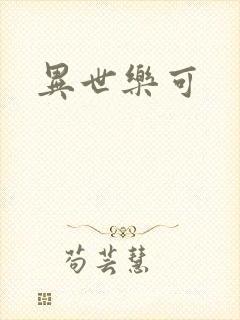 異世樂可
苟芸慧